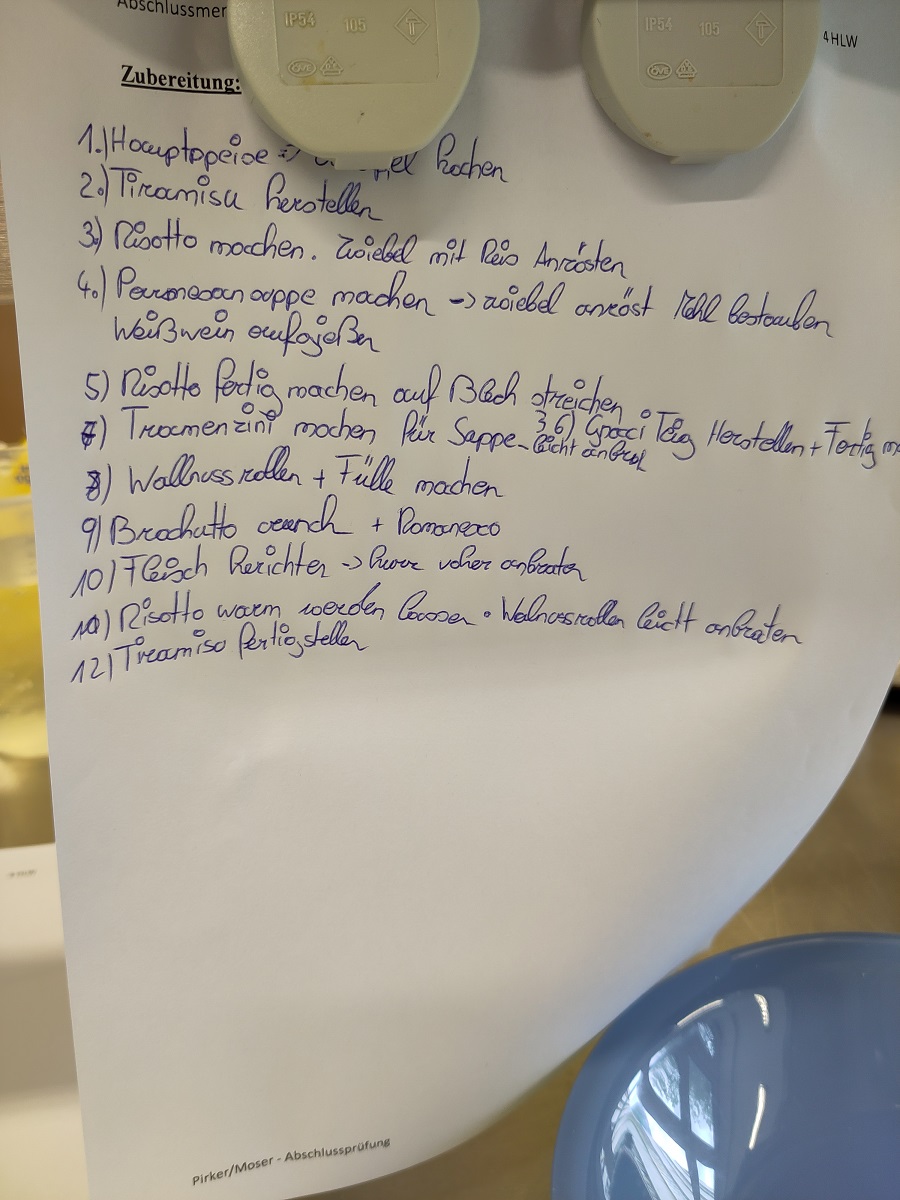 Abschlussmer
4HLW
IP54 105
IP54 105
ÖVE
ÖVE
Zubereitung:
1.) Hauptspeise => kochen
2.) Tiramisu herstellen
3.) Risotto machen. Zwiebel mit Reis Anrösten
4.) Parmesansuppe machen -> zwiebel anröst Mehl bestauben
Weißwein aufgießen
5) Risotto fertig machen auf Blech streichen
6) Gnocci Teig Herstellen + Fertig
7) Tramenzini machen für Suppe - leicht anbrat
8) Wallnussrollen + Fülle machen
9) Prochutto crunch + Romanesco
10) Fleisch herichten -> kurz voher anbraten
11) Risotto warm werden lassen • Walnussrollen leicht anbraten
12) Tiramiso fertigstellen
Pirker/Moser - Abschlussprüfung